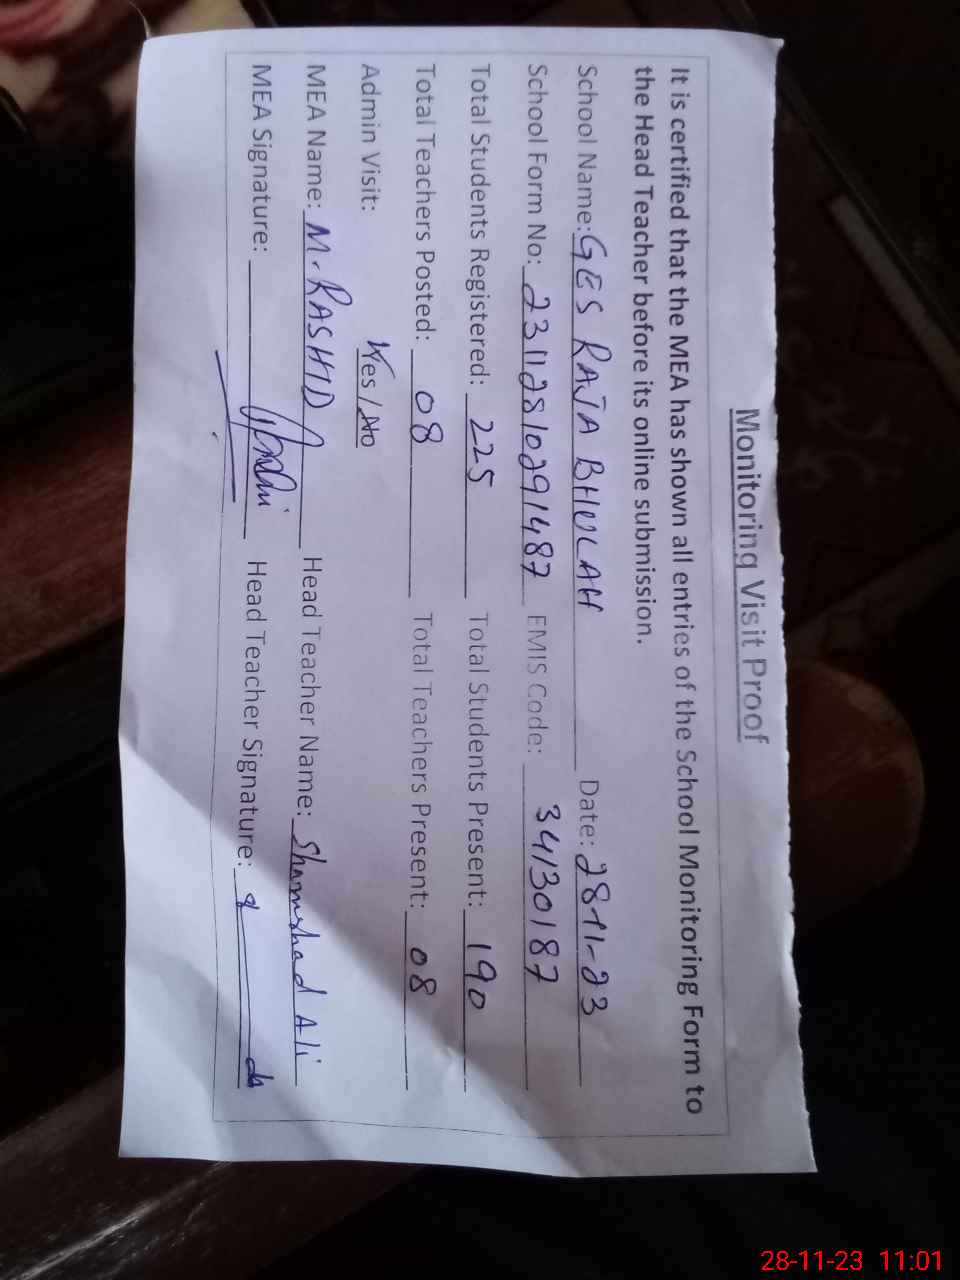 Monitoring Visit Proof
It is certified that the MEA has shown all entries of the School Monitoring Form to
the Head Teacher before its online submission.
School Name: GES RAJA BHULAH Date: 28-11-23
School Form No: 23112810291487 EMIS Code: 34130187
Total Students Registered: 225 Total Students Present: 190
Total Teachers Posted: 08 Total Teachers Present: 08
Admin Visit: Yes / No
MEA Name: M. RASHID Head Teacher Name: Shamshad Ali
MEA Signature: Head Teacher Signature:
28-11-23 11:01